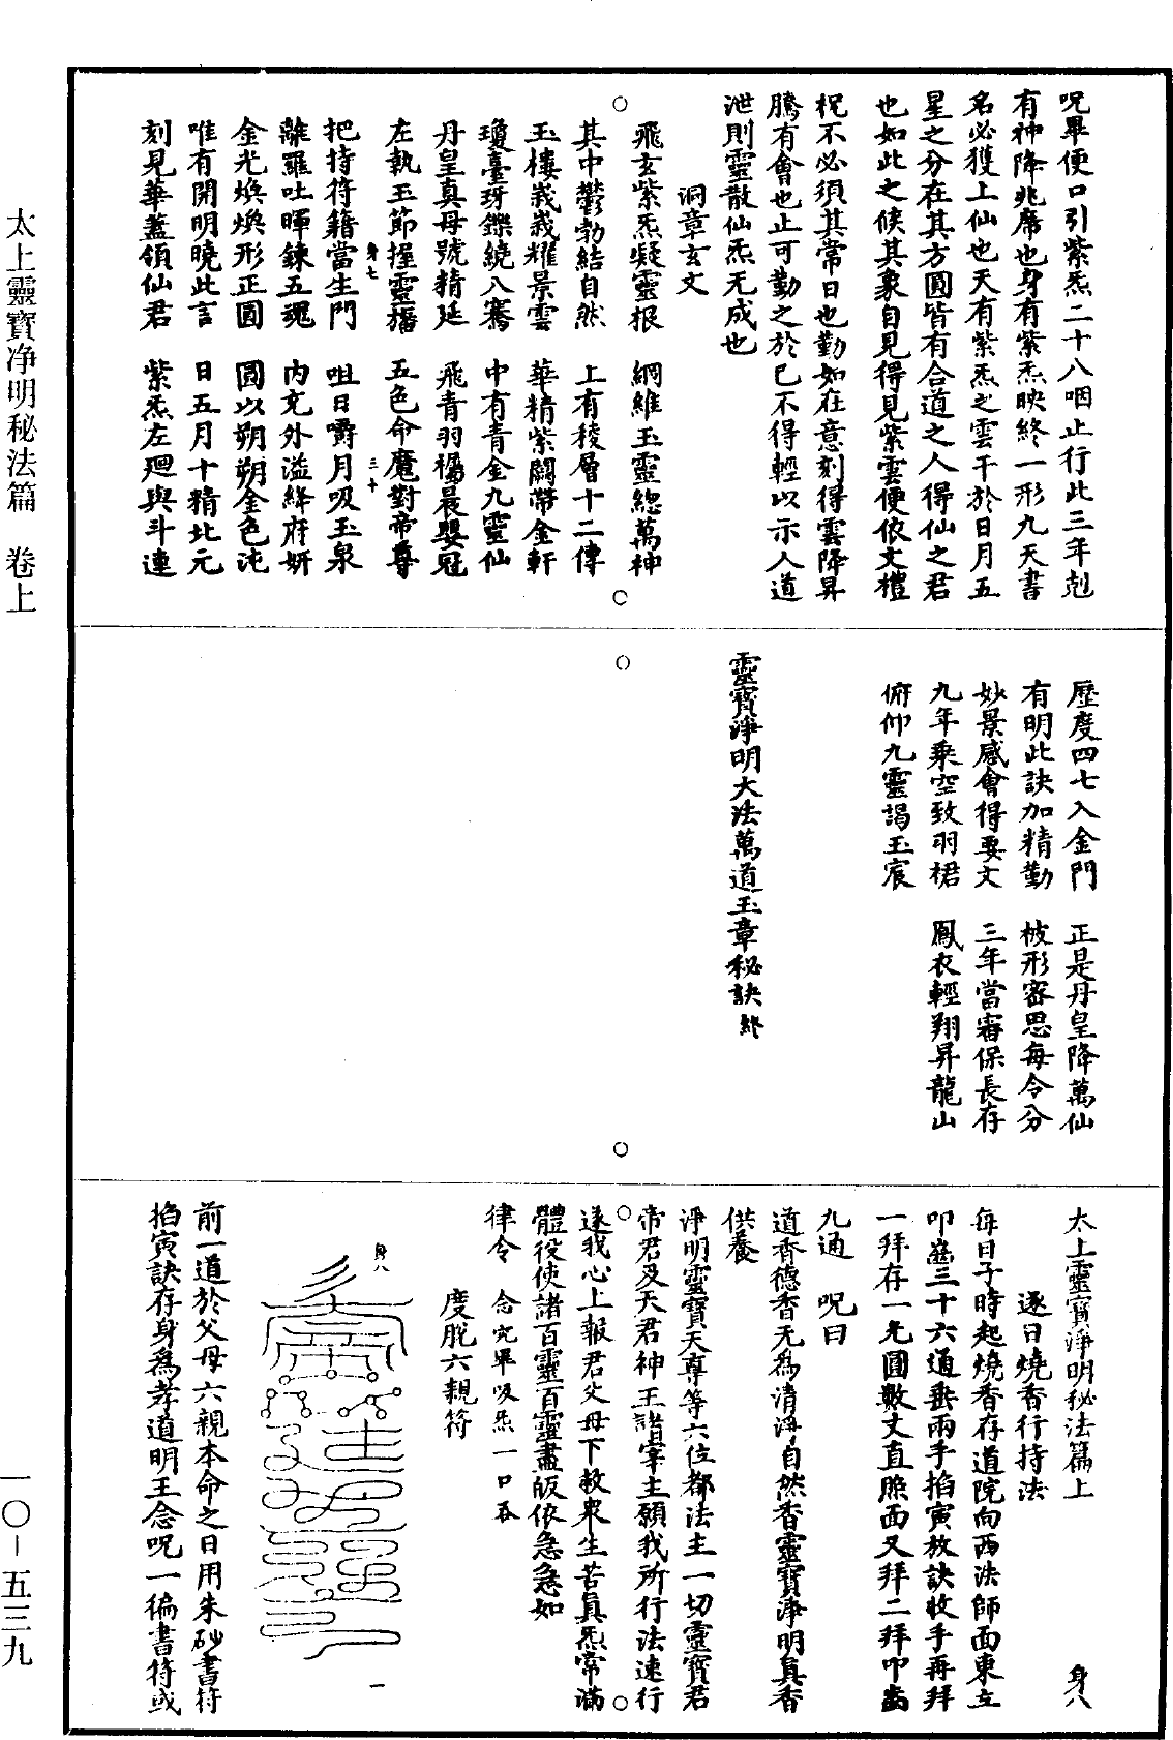 呪畢便口引紫炁二十八咽止行此三年剋
有神降兆席也身有紫炁映終一形九天書
名必獲上仙也天有紫炁之雲干於日月五
星之分在其方圓皆有合道之人得仙之君
也如此之候其象自見得見紫雲便依文禮
祝不必須其常日也勤如在意刻得雲降昇
騰有會也止可勤之於已不得輕以示人道
泄則靈散仙炁无成也
洞章玄文
飛玄紫炁凝靈根 綱維玉靈總萬神
其中鬱勃結自然 上有稜層十二傳
玉樓峩峩耀景雲 華精紫闕帶金軒
瓊臺玡鑠繞八騫 中有青金九靈仙
丹皇真母號精延 飛青羽襡晨嬰冠
左執玉節握靈旛 五色命魔對帝尊
身七 三十
把持符籍當生門 咀日嚼月吸玉泉
離羅吐暉鍊五魂 內充外溢絳府妍
金光煥煥形正圓 圓以朔朔金色沌
唯有開明曉此言 日五月十精北元
刻見華蓋領仙君 紫炁左廻與斗連
歷度四七入金門 正是丹皇降萬仙
有明此訣加精勤 披形審思每令分
妙景感會得要文 三年當審保長存
九年乘空致羽裙 鳳衣輕翔昇龍山
俯仰九靈謁玉宸
靈寶淨明大法萬道玉章秘訣終
太上靈寶淨明秘法篇上 身八
逐日燒香行持法
每日子時起燒香存道院向西法師面東立
叩齒三十六通垂兩手掐寅放訣收手再拜
一拜存一光圓數丈直照面又拜二拜叩齒
九通 呪曰
道香德香无為清淨自然香靈寶淨明真香
供養
淨明靈寶天尊等六位都法主一切靈寶君
帝君及天君神王諸宰主願我所行法速行
遂我心上報君父母下救眾生苦真炁常滿
體役使諸百靈百靈盡皈依急急如
律令 念咒畢吸炁一口吞
度脫六親符
身八
一
前一道於父母六親本命之日用朱砂書符
掐寅訣存身為孝道明王念呪一徧書符或
太上靈寶净明秘法篇 卷上
一〇－五三九